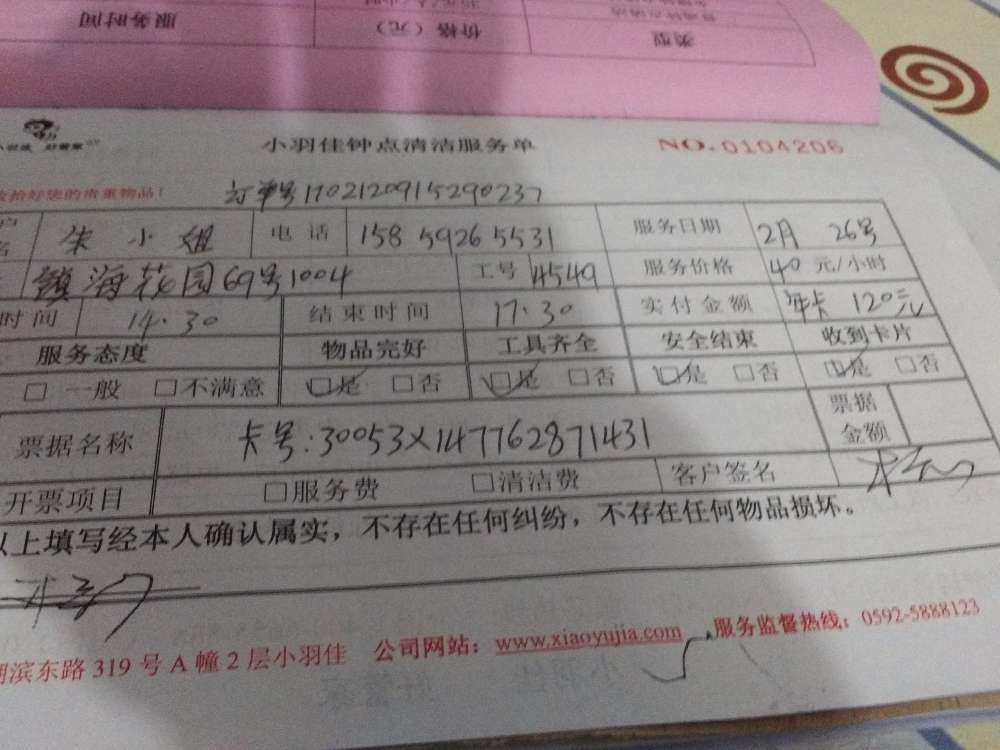 类型 价格（元） 服务时间
小羽佳钟点清洁服务单 NO.0104206
收拾好您的贵重物品！ 订单号1702120915290237
朱小姐 电话 158 5926 5531 服务日期 2月 26号
镇海花园69号1004 工号 4549 服务价格 40 元/小时
时间 14:30 结束时间 17:30 实付金额 年卡 120元
服务态度 物品完好 工具齐全 安全结束 收到卡片
□ 一般 □不满意 ☑是 □否 ☑是 □否 ☑是 □否 ☑是 □否
票据名称 卡号:30053X147762871431 票据金额
开票项目 □服务费 □清洁费 客户签名
以上填写经本人确认属实，不存在任何纠纷，不存在任何物品损坏。
湖滨东路319号A幢2层小羽佳 公司网站：www.xiaoyujia.com 服务监督热线：0592-5888123